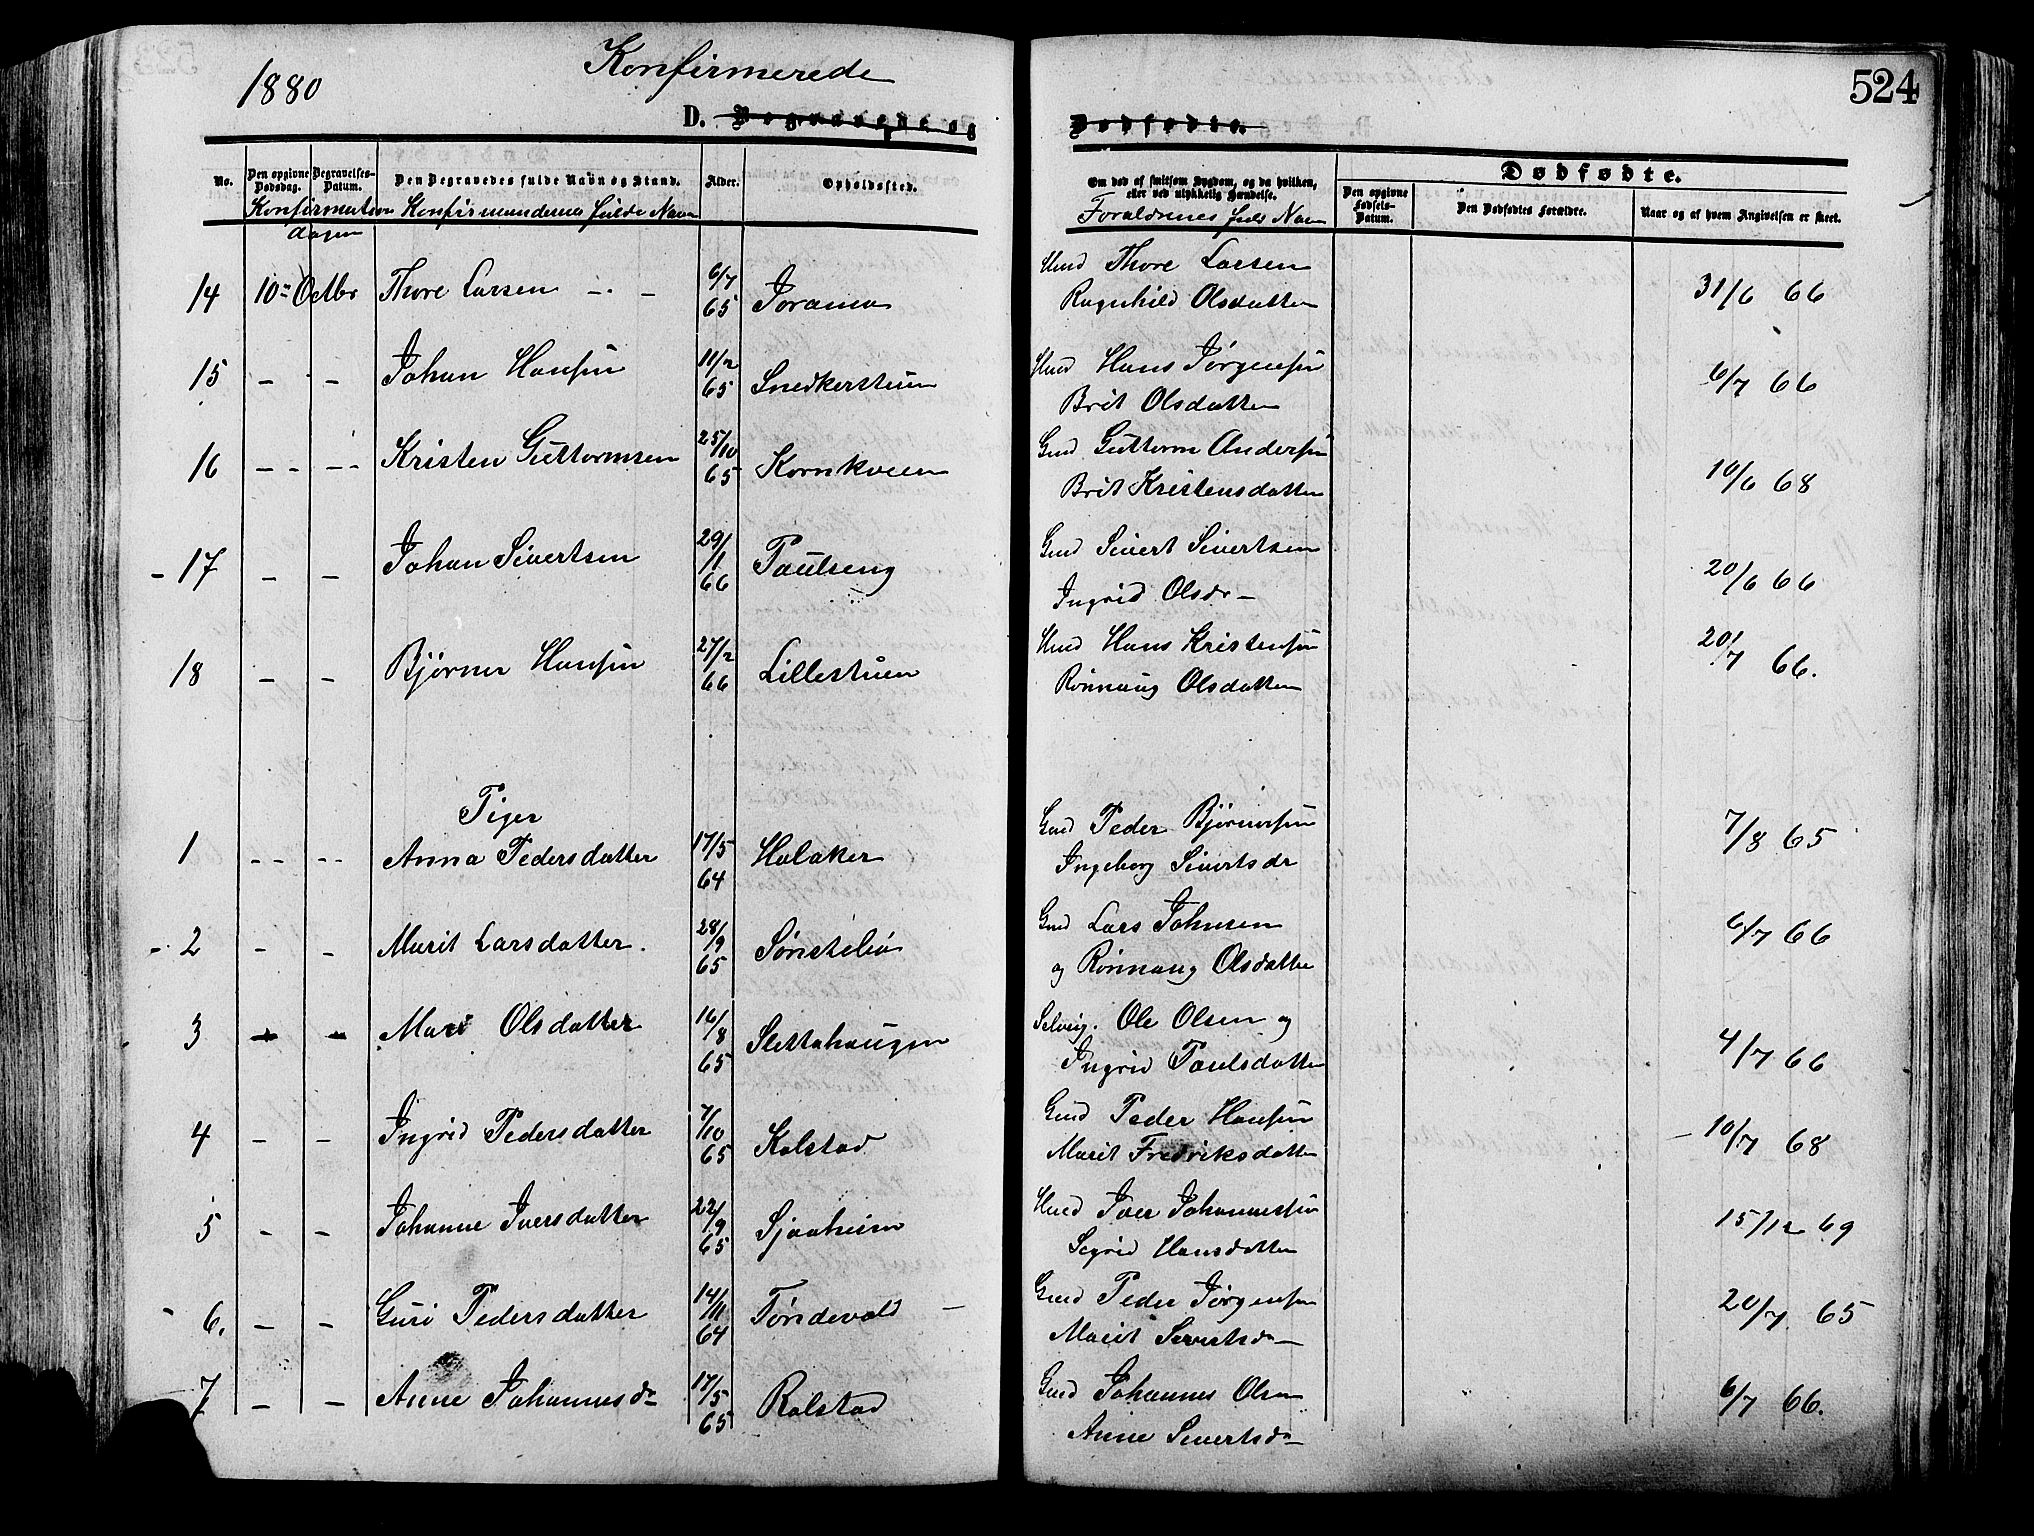 1880 Konfirmerede 524
D. Begravede og Dødfødte.
No. Den opgivne Dødsdag. Begravelses-Datum. Den Begravedes fulde Navn og Stand. Alder. Opholdssted. Om død af smitsom Sygdom, og da hvilken, eller ved ulykkelig Hændelse. Dødfødte.
Den opgivne Fødsels-Datum. Den Dødfødtes Forældre. Naar og af hvem Angivelsen er skeet.
Konfirmations dagen Konfirmandernes fulde Navn Forældrenes fulde Navn
14 10de Octbr Thore Larsen 6/7 65 Joramo Hmd Thore Larsen 31/6 66
Ragnhild Olsdatter
15 - - Johan Hansen 11/2 65 Snedkerstuen Hmd Hans Jørgensen 6/7 66
Brit Olsdatter
16 - - Kristen Guttormsen 25/10 65 Kornkveen Gmd Guttorm Andersen 10/6 68
Brit Kristensdatter
- 17 - - Johan Sivertsen 29/1 66 Paulseng Gmd Sivert Sivertsen 20/6 66
Ingrid Olsdr
18 - - Bjørner Hansen 27/2 66 Lillestuen Hmd Hans Kristensen 20/7 66.
Rønnaug Olsdatter
Piger
1 - - Anna Pedersdatter 17/5 64 Holaker Gmd Peder Bjørnersen 7/8 65
Ingeborg Sivertsdr
- 2 - - Marit Larsdatter. 28/9 65 Sønstebø Gmd Lars Johnsen 6/7 66
og Rønnaug Olsdatter
3 - - Mari Olsdatter 16/8 65 Slettahaugen Selveig. Ole Olsen og 4/7 66
Ingrid Paulsdatter
4 - - Ingrid Pedersdatter 7/10 65 Kolstad Gmd Peder Hansen - 10/7 68
Marit Fredriksdatter
5 - - Johanne Iversdatter 22/9 65 Sjaaheim Hmd Iver Johannessen 15/12 69
Sigrid Hansdatter
- 6. - - Guri Pedersdatter 14/11 64 Tøndevold - Gmd Peder Jørgensen 20/7 65
Marit Sivertsdr
7 - - Anne Johannesdr 17/5 65 Rolstad Gmd Johannes Olsen 6/7 66.
Anne Sivertsdr